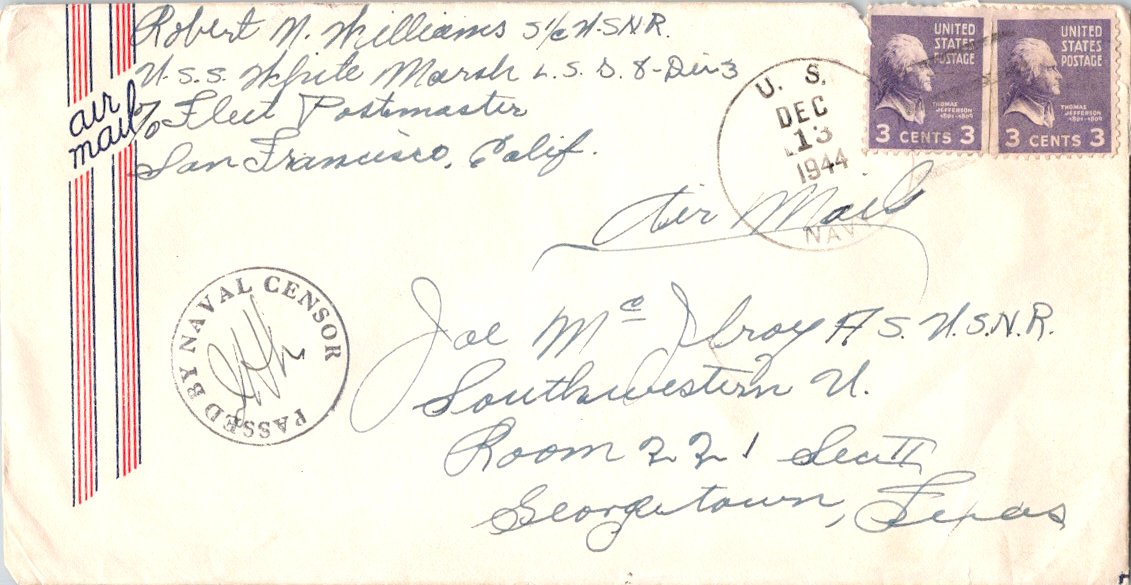 Robert N. Williams S1/c U.S.N.R.
U.S.S. White Marsh L.S.D. 8-Div 3
c/o Fleet Postmaster
San Francisco, Calif.
air
mail
UNITED
STATES
POSTAGE
THOMAS
JEFFERSON
1801-1809
3 CENTS 3
UNITED
STATES
POSTAGE
THOMAS
JEFFERSON
1801-1809
3 CENTS 3
U. S.
DEC
13
1944
NAVY
Air Mail
PASSED BY NAVAL CENSOR
Joe McIlroy A.S. U.S.N.R.
Southwestern U.
Room 221 Sec II
Georgetown, Texas